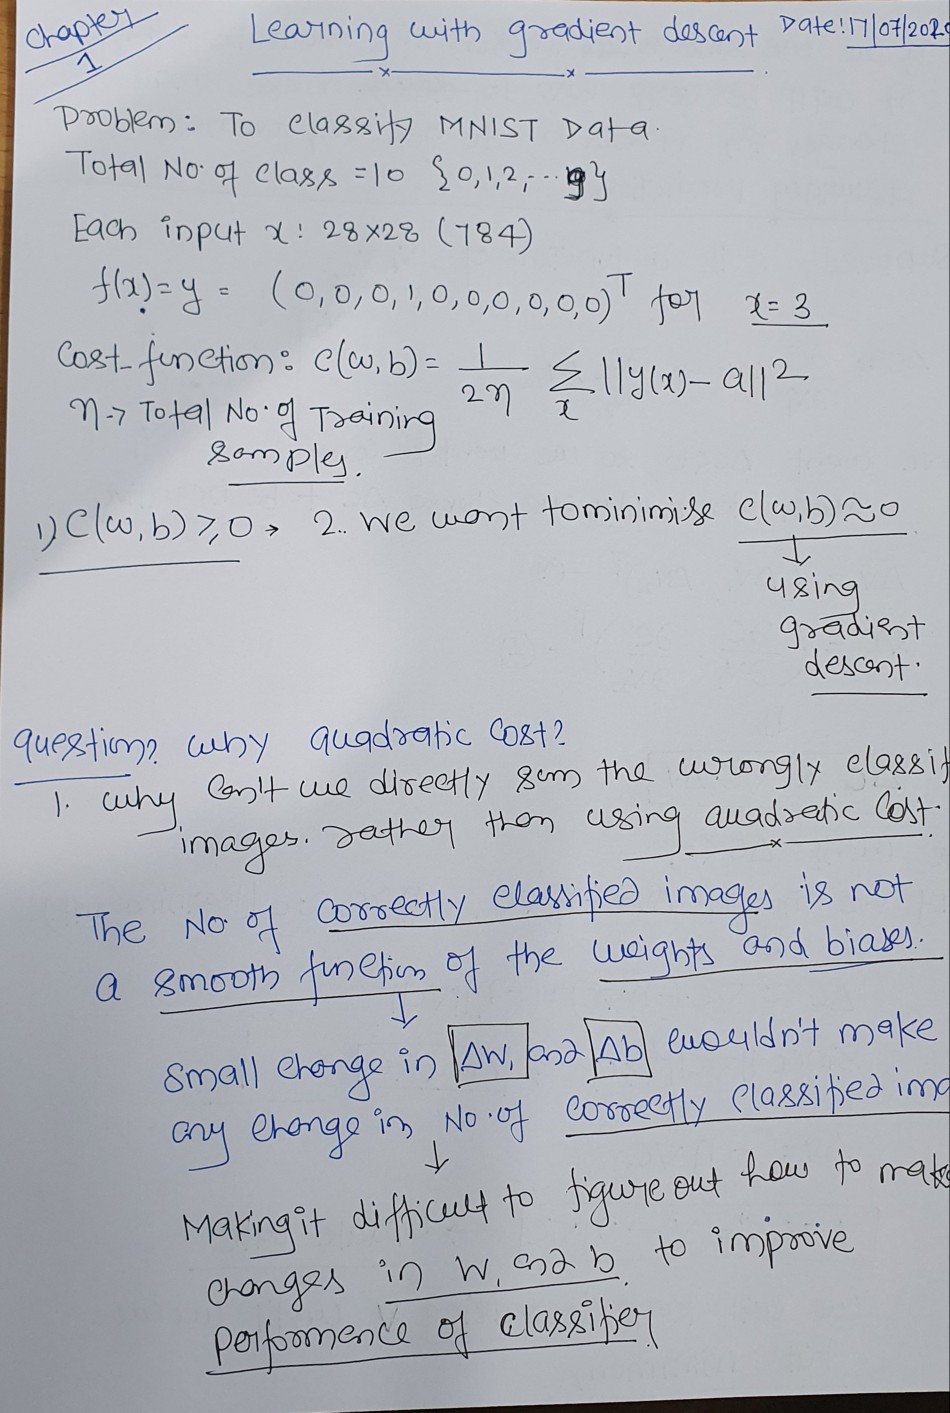 Chapter
1
Learning with gradient descent Date: 17/07/202
Problem: To classify MNIST Data.
Total No. of class = 10 {0,1,2,... 9}
Each input x : 28x28 (784)
f(x) = y = (0,0,0,1,0,0,0,0,0,0)ᵀ for x = 3
Cost function: C(w,b) = 1/2n Σₓ ||y(x) - a||²
n → Total No. of Training
samples.
1) C(w,b) ≥ 0, 2. we want to minimise C(w,b) ≈ 0
↓
using
gradient
descent.
Question? why quadratic cost?
1. why can't we directly sum the wrongly classif
images. rather than using quadratic cost.
The No. of correctly classified images is not
a smooth function of the weights and biases.
↓
small change in ΔW, and Δb wouldn't make
any change in No. of correctly classified ima
↓
Making it difficult to figure out how to make
changes in W, and b to improve
performence of classifier